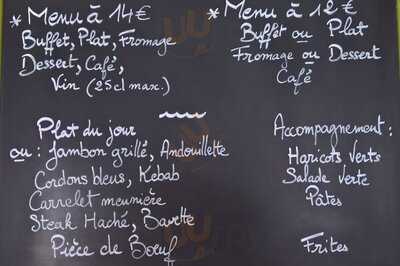 * Menu à 14€
Buffet, Plat, Fromage
Dessert, Café,
Vin (25cl max.)
* Menu à 12€
Buffet ou Plat
Fromage ou Dessert
Café
Plat du jour
ou : Jambon grillé, Andouillette
Cordons bleus, Kebab
Carrelet meunière
Steak Haché, Bavette
Pièce de Boeuf
Accompagnement :
Haricots Verts
Salade Verte
Pâtes
Frites